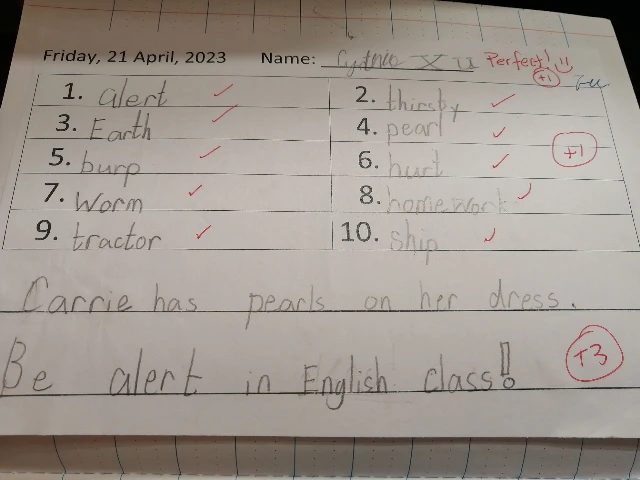 Friday, 21 April, 2023 Name: Xu Perfect!
+1
1. alert 2. thirsty
3. Earth 4. pearl
+1
5. burp 6. hurt
7. worm 8. homework
9. tractor 10. ship
Carrie has pearls on her dress.
+3
Be alert in English class!